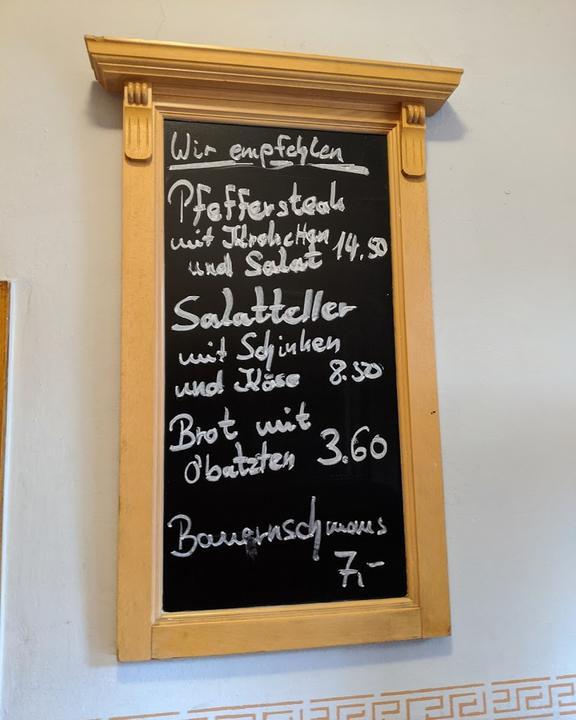 Wir empfehlen
Pfeffersteak
mit Kroketten 14.50
und Salat
Salatteller
mit Schinken
und Käse 8.50
Brot mit
O'batzten 3.60
Bauernschmaus
7,-